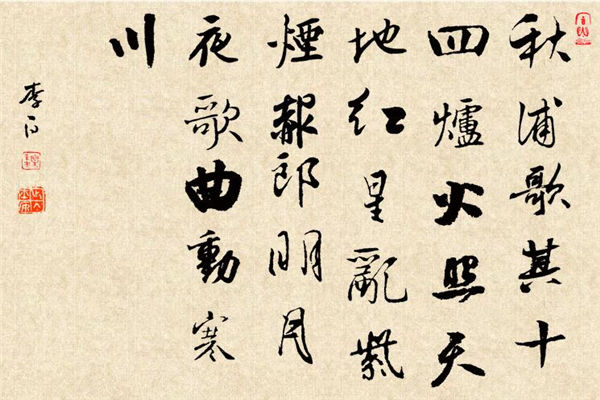 秋浦歌其十
四爐火照天
地红星亂紫
煙赧郎明月
夜歌曲動寒
川
李白